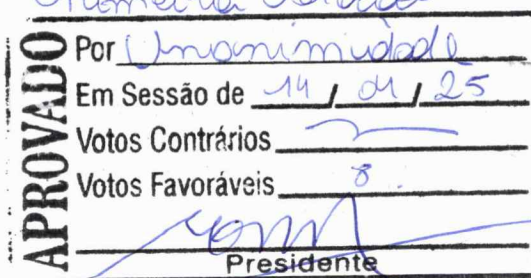 Primeira Votação
APROVADO
Por Unanimidade
Em Sessão de 14 / 01 / 25
Votos Contrários —
Votos Favoráveis 8.
Presidente